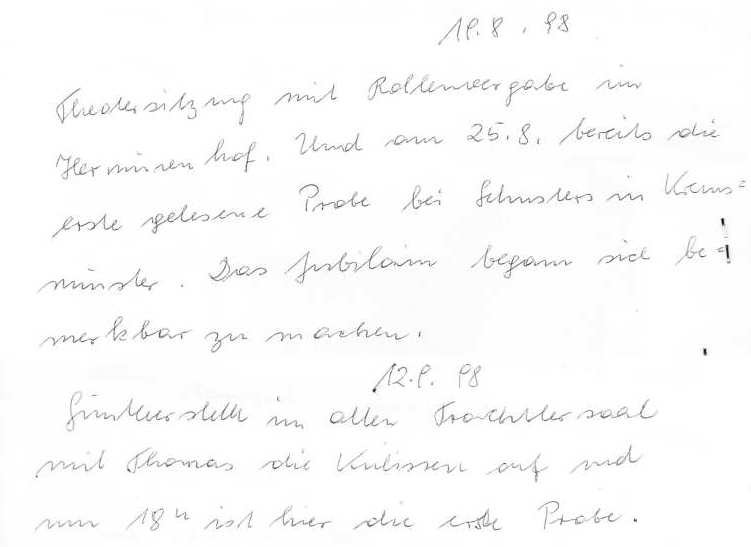 19.8.98
Theatersitzung mit Rollenvergabe im
Herminenhof. Und am 25.8. bereits die
erste gelesene Probe bei Schusters in Krems=
münster. Das Jubiläum begann sich be=
merkbar zu machen.
12.9.98
Günther stellt im alten Trachtlersaal
mit Thomas die Kulissen auf und
um 18h ist hier die erste Probe.